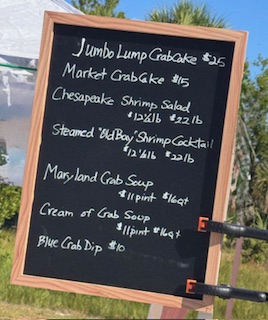 Jumbo Lump CrabCake $25
Market CrabCake $15
Chesapeake Shrimp Salad
$12 ½lb $22 lb
Steamed "Old Bay" Shrimp Cocktail
$12 ½lb $22 lb
Maryland Crab Soup
$11 pint $16 qt
Cream of Crab Soup
$11 pint $16 qt
Blue Crab Dip $10